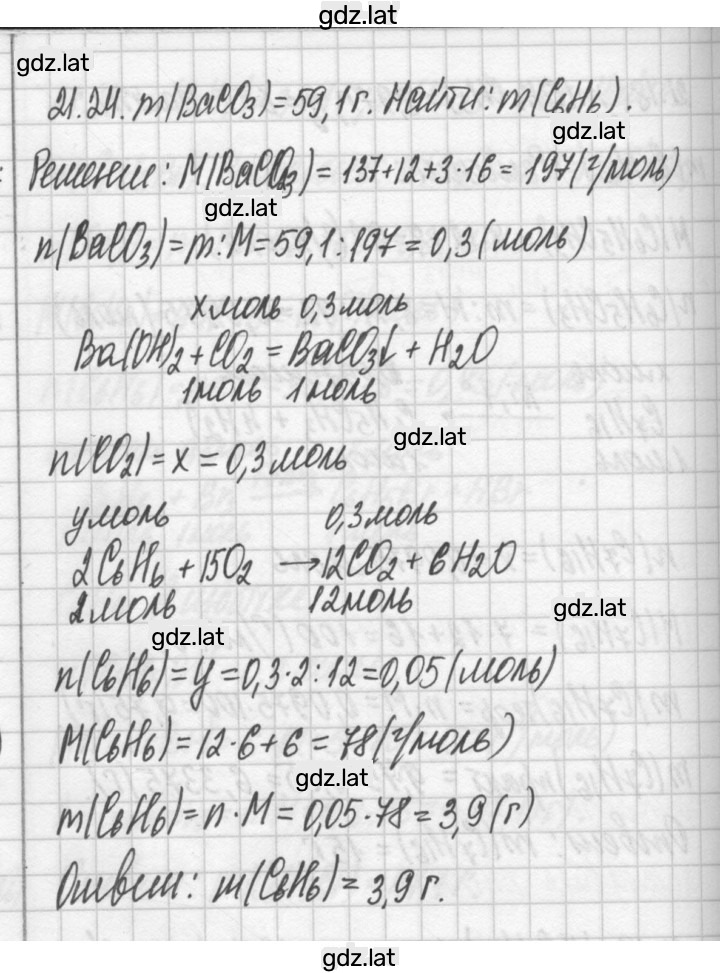 gdz.lat
gdz.lat
21.24. m(BaCO₃)=59,1г. Найти: m(C₆H₆).
gdz.lat
Решение: M(BaCO₃)=137+12+3·16=197(г/моль)
gdz.lat
n(BaCO₃)=m:M=59,1:197=0,3(моль)
x моль 0,3 моль
Ba(OH)₂+CO₂=BaCO₃↓+H₂O
1моль 1моль
gdz.lat
n(CO₂)=x=0,3моль
y моль 0,3моль
2C₆H₆+15O₂→12CO₂+6H₂O
2моль 12моль
gdz.lat
gdz.lat
n(C₆H₆)=y=0,3·2:12=0,05(моль)
M(C₆H₆)=12·6+6=78(г/моль)
gdz.lat
m(C₆H₆)=n·M=0,05·78=3,9(г)
Ответ: m(C₆H₆)=3,9г.
gdz.lat